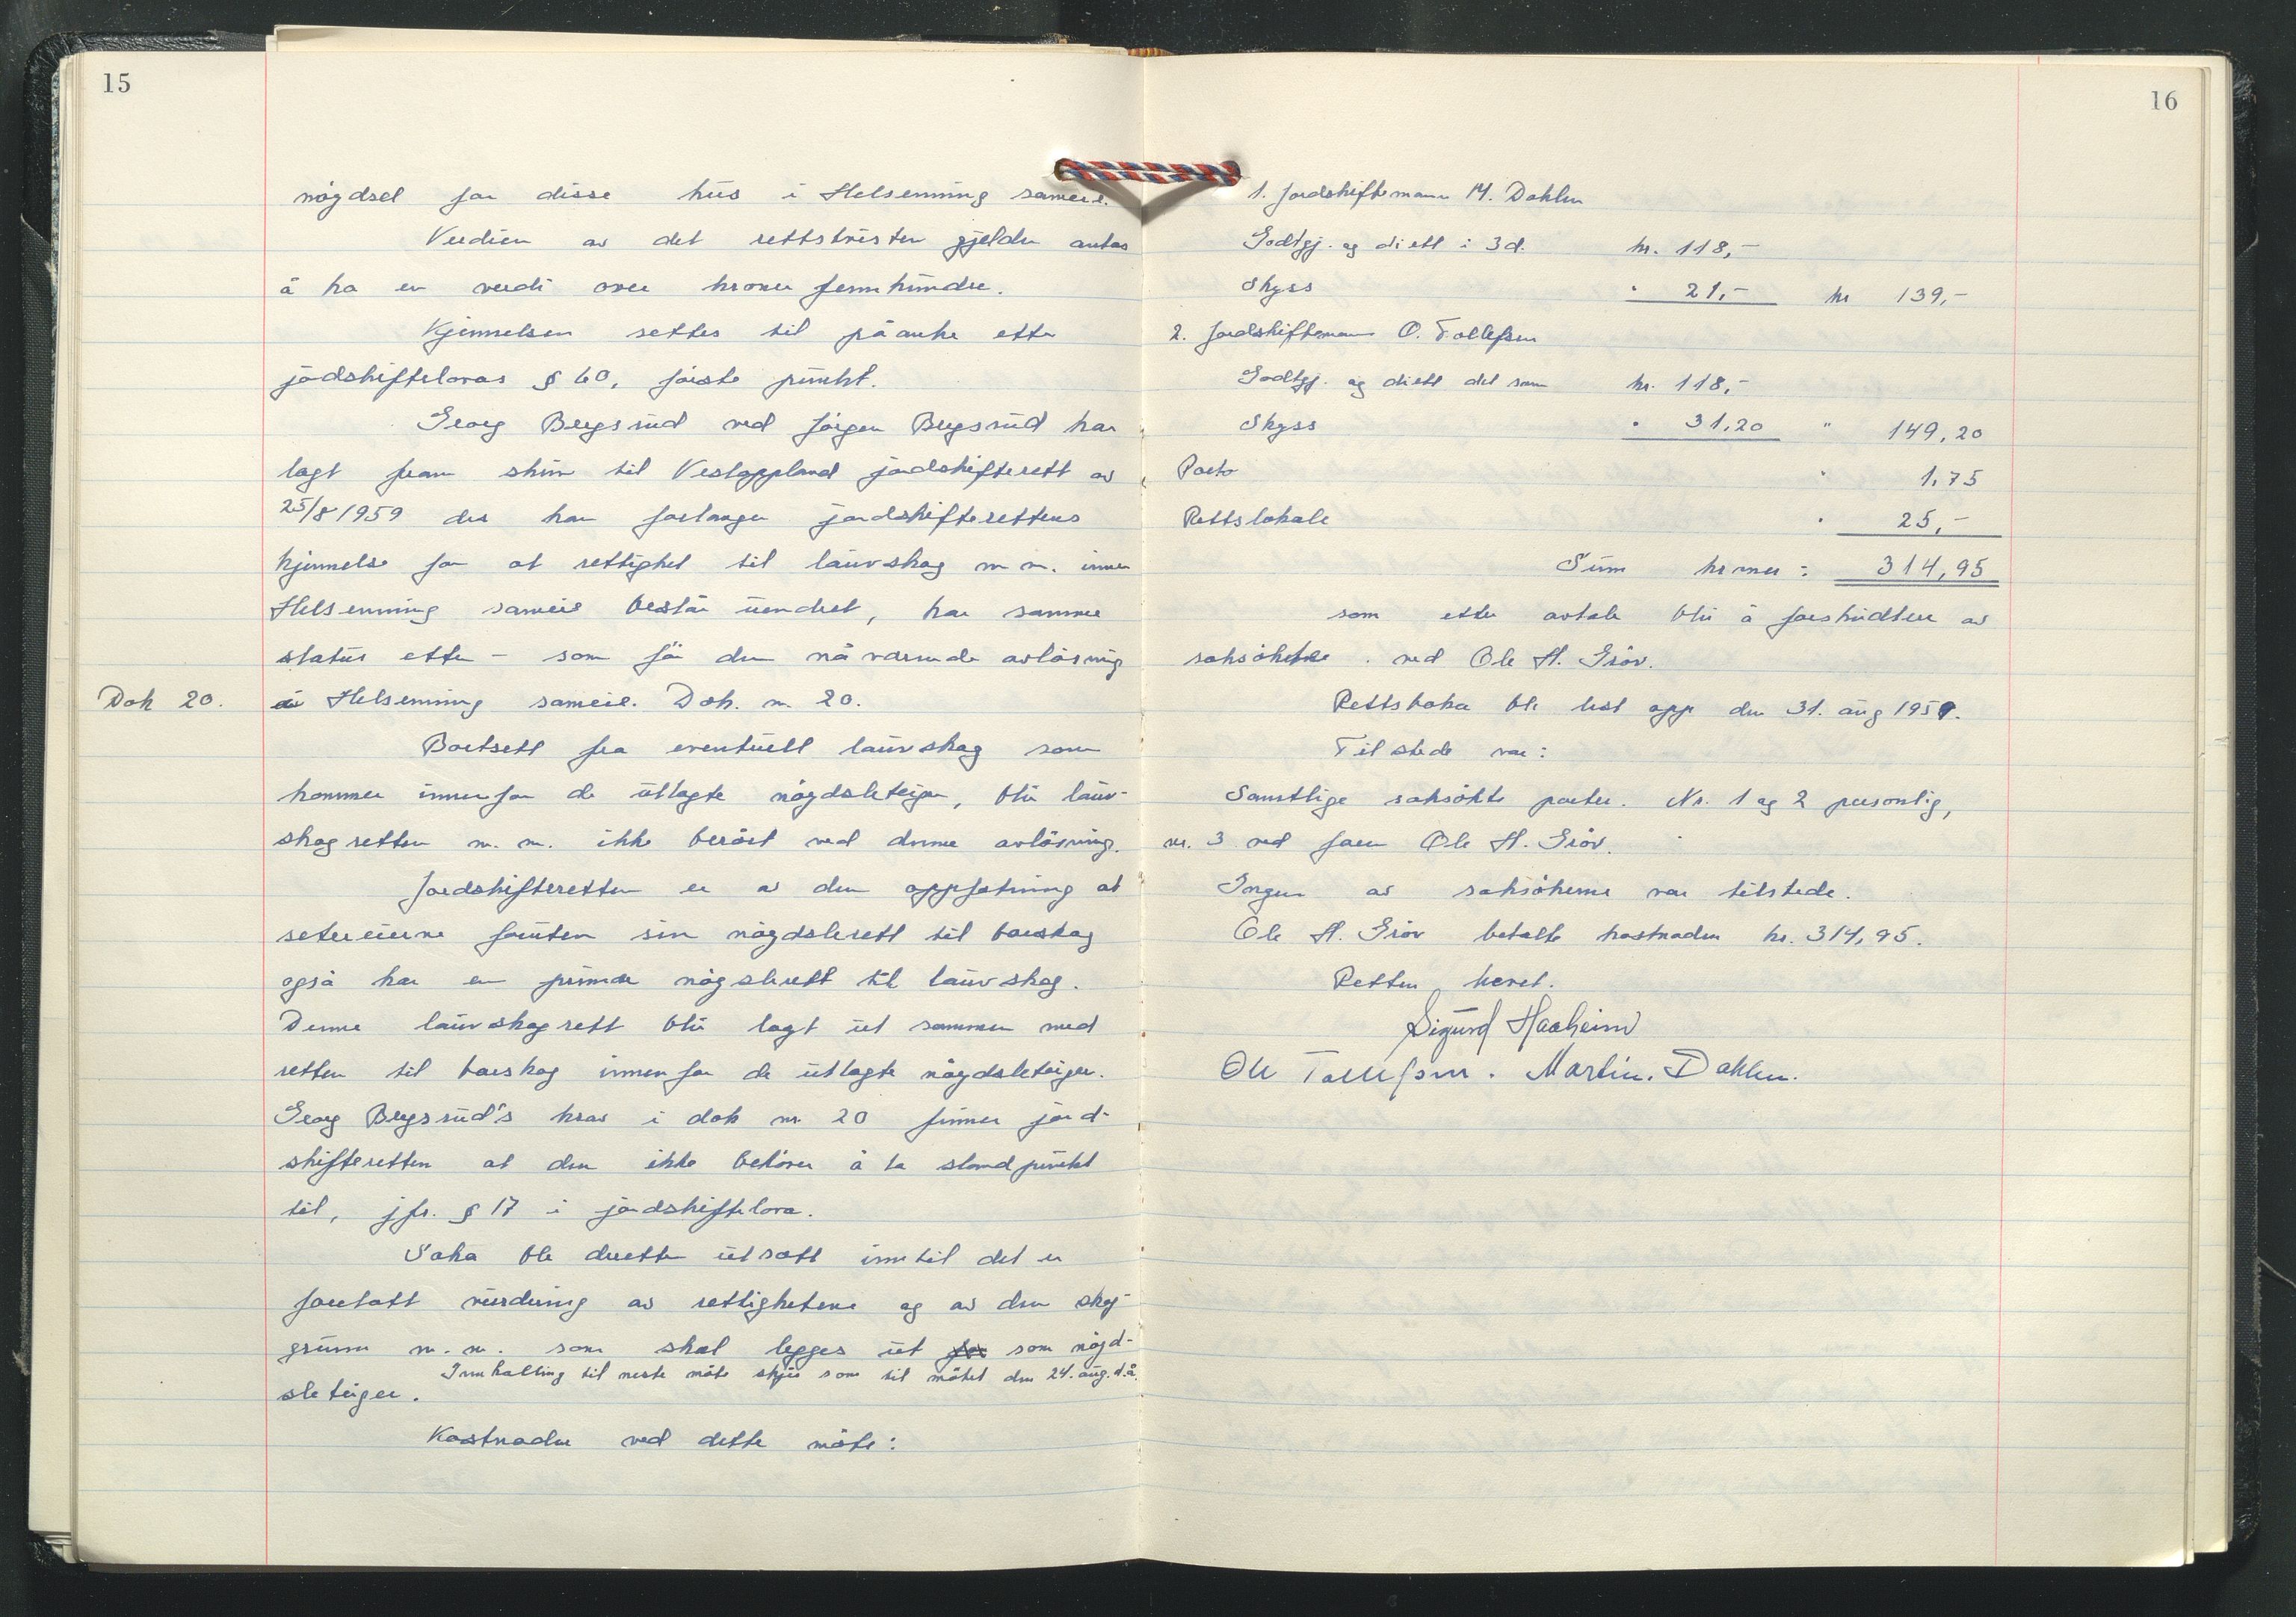 15
nøgdsel for disse hus i Helsenning sameie.
Verdien av det rettstvisten gjelder antas
å ha en verdi over kroner femhundre.
Kjennelsen settes til påanke etter
jordskiftelovas § 60, første punkt.
Georg Bergsrud ved Jørgen Bergsrud har
lagt fram skriv til Vestoppland jordskifterett av
25/8 1959 der han forlanger jordskifterettens
kjennelse for at rettighet til lauvskog m.m. innen
Helsenning sameie består uendret, har samme
status etter - som før den nåværende avløsning
Dok 20.
i Helsenning sameie. Dok. nr. 20.
Bortsett fra eventuell lauvskog som
kommer innenfor de utlagte nøgdsleteiger, blir lauv-
skogretten m.m. ikke berørt ved denne avløsning.
Jordskifteretten er av den oppfatning at
setereierne foruten sin nøgdslerett til barskog
også har en primær nøgslerett til lauvskog.
Denne lauvskogrett blir lagt ut sammen med
retten til barskog innenfor de utlagte nøgdsleteiger.
Georg Bergsrud's krav i dok nr. 20 finner jord-
skifteretten at den ikke behøver å ta standpunkt
til, jfr. § 17 i jordskiftelova.
Saka ble deretter utsatt inntil det er
foretatt vurdering av rettighetene og av den skog-
grunn m.m. som skal legges ut for som nøgd-
sleteiger. Innkalling til neste møte skjer som til møtet den 24. aug. d.å.
Kostnader ved dette møte:
16
1. Jordskiftemann M. Dahlen
Godtgj. og diett i 3 d. kr. 118,-
Skyss " 21,- kr 139,-
2. Jordskiftemann O. Tollefsen
Godtgj. og diett det sam kr. 118,-
Skyss " 31,20 " 149,20
Porto " 1,75
Rettslokale " 25,-
Sum kroner: 314,95
som etter avtale blir å forskudtere av
saksøkerne ved Ole H. Grøv.
Rettsboka ble lest opp den 31. aug 1959.
Tilstede var:
Samtlige saksøkte parter. Nr. 1 og 2 personlig,
nr. 3 ved faren Ole H. Grøv.
Ingen av saksøkerne var tilstede.
Ole H. Grøv betalte kostnaden kr. 314,95.
Retten hevet.
Sigurd Haaheim
Ole Tollefsen. Martin. Dahlen.